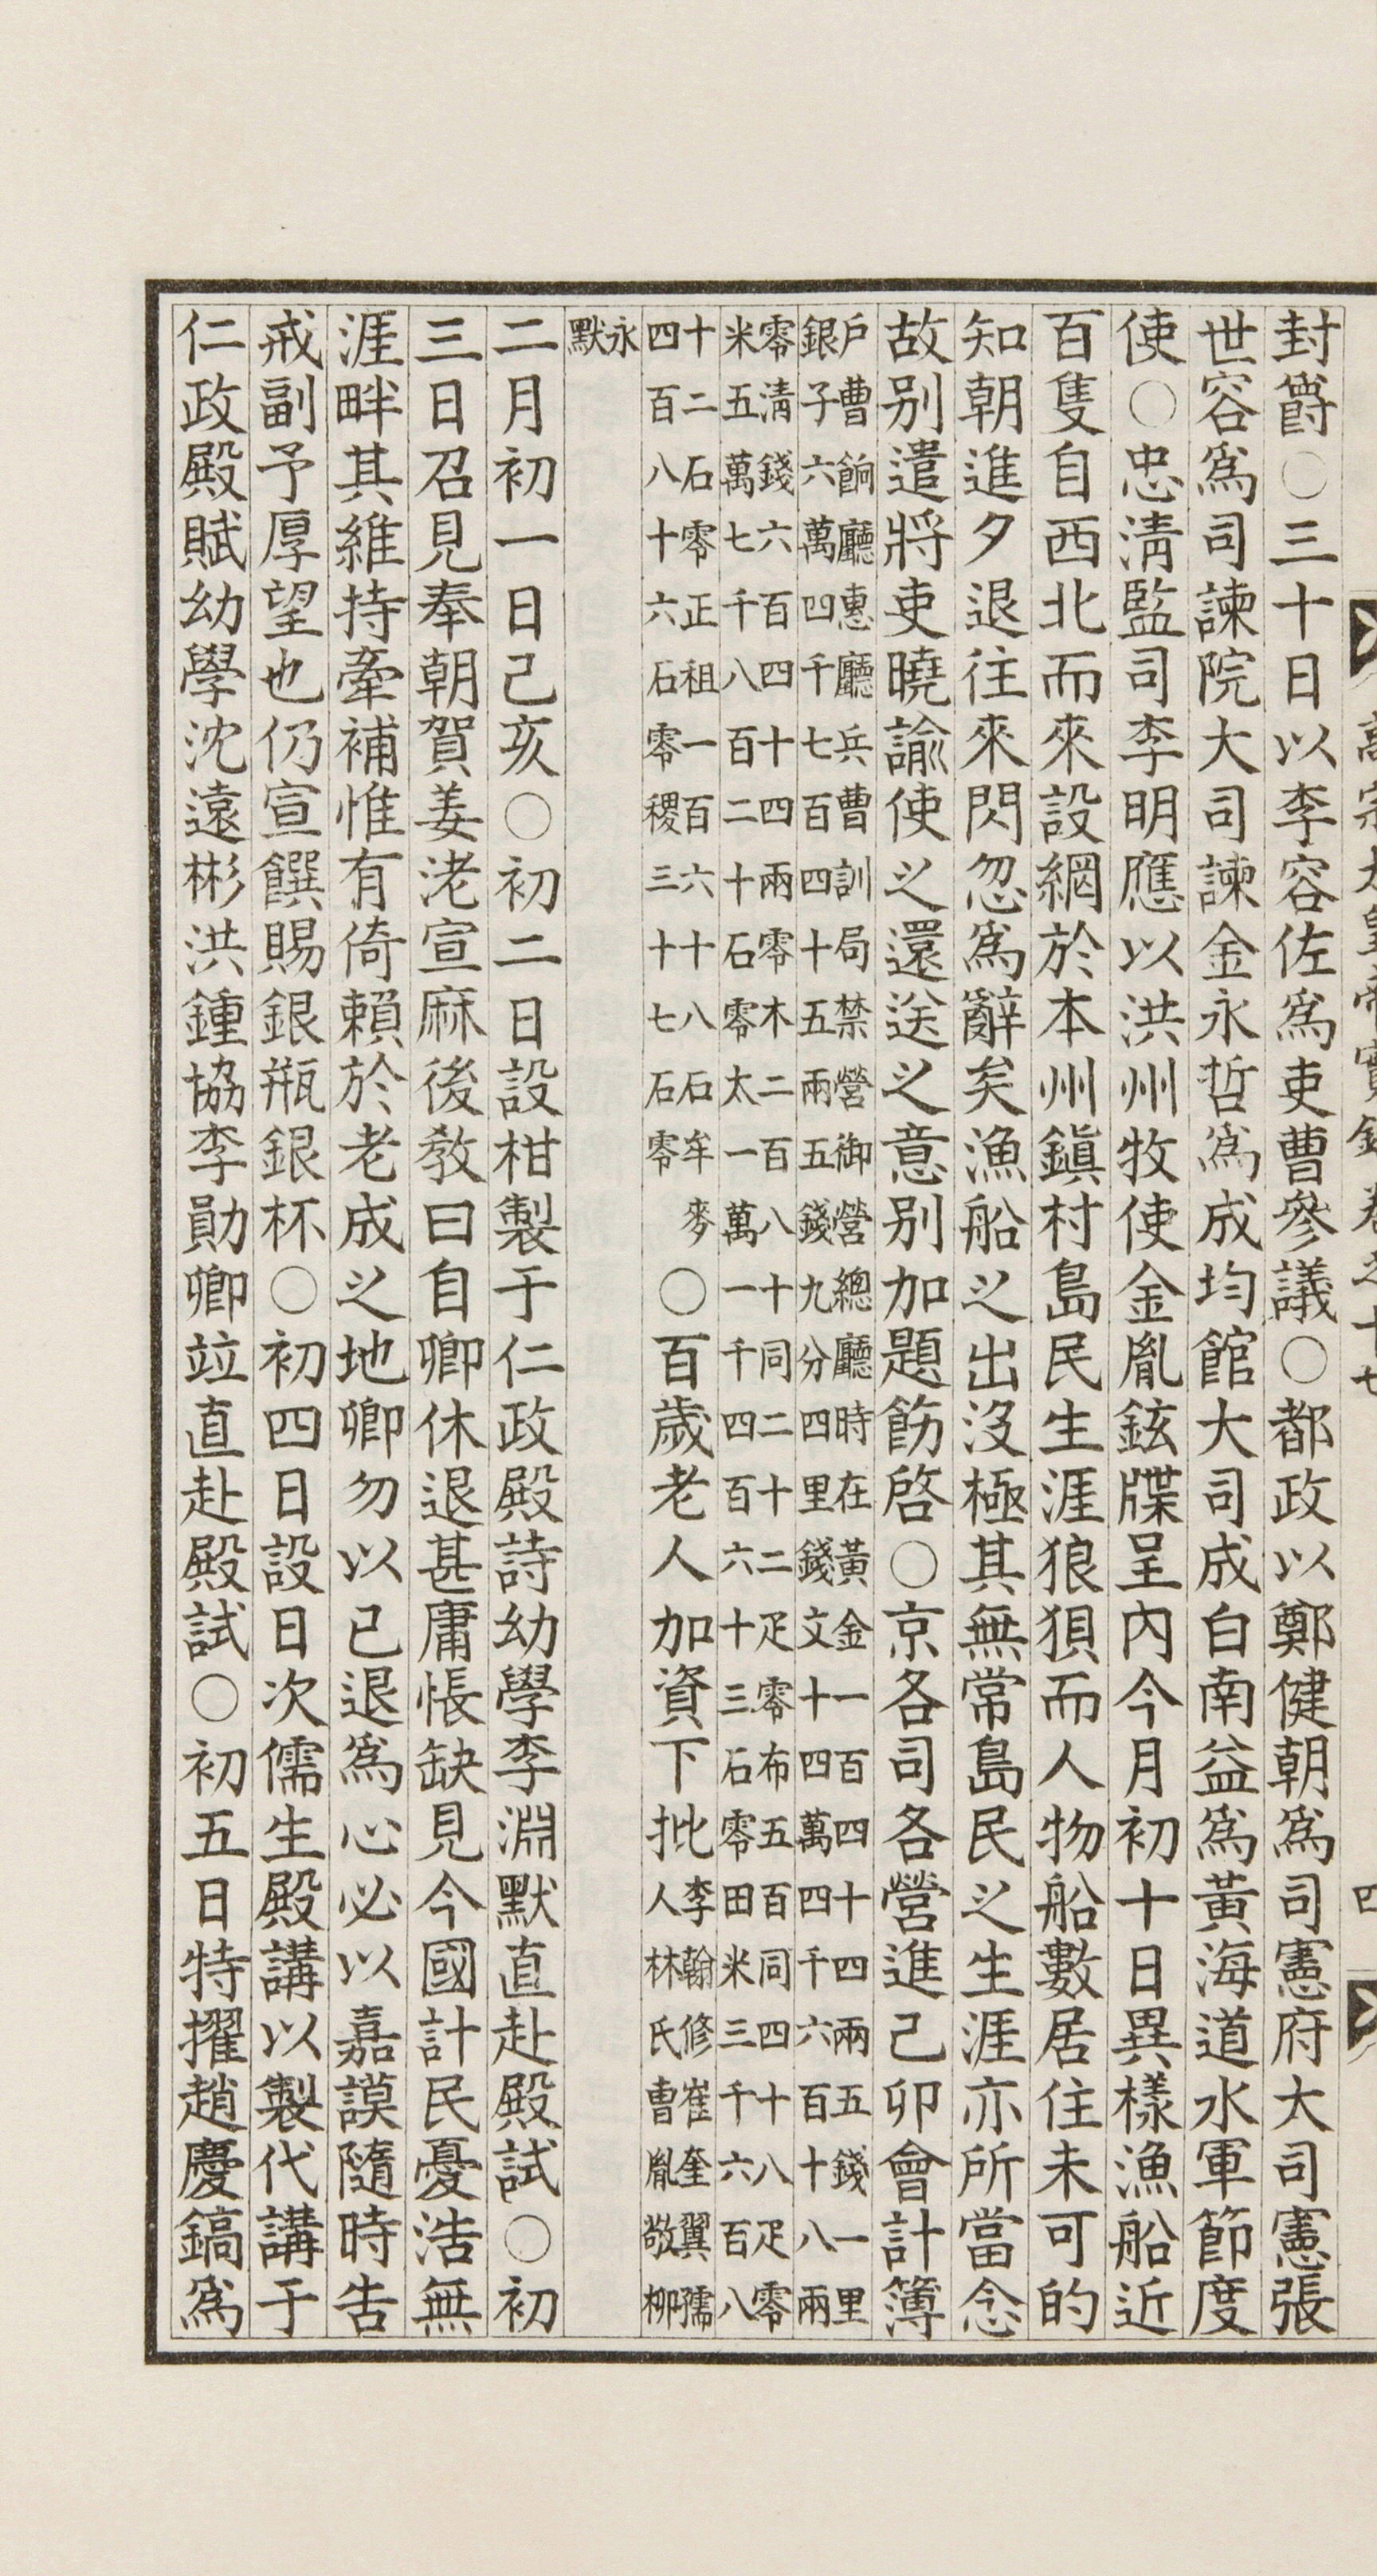 封爵○三十日以李容佐爲吏曹參議○都政以鄭健朝爲司憲府大司憲張
世容爲司諫院大司諫金永哲爲成均館大司成白南益爲黃海道水軍節度
使○忠淸監司李明應以洪州牧使金胤鉉牒呈內今月初十日異樣漁船近
百隻自西北而來設網於本州鎭村島民生涯狼狽而人物船數居住未可的
知朝進夕退往來閃忽爲辭矣漁船之出沒極其無常島民之生涯亦所當念
故別遣將吏曉諭使之還送之意別加題飭啓○京各司各營進己卯會計簿
戶曹餉廳惠廳兵曹訓局禁營御營總廳時在黃金一百四十四兩五錢一里
銀子六萬四千七百四十五兩五錢九分四里錢文十四萬四千六百十八兩
零淸錢六百四十四兩零木二百八十同二十二疋零布五百同四十八疋零
米五萬七千八百二十石零太一萬一千四百六十三石零田米三千六百八
十二石零正租一百六十八石牟麥
四百八十六石零稷三十七石零
○百歲老人加資下批
李翰修崔奎翼孺
人林氏曹胤敬柳
永
默
二月初一日己亥○初二日設柑製于仁政殿詩幼學李淵默直赴殿試○初
三日召見奉朝賀姜㳣宣麻後敎曰自卿休退甚庸悵缺見今國計民憂浩無
涯畔其維持牽補惟有倚賴於老成之地卿勿以已退爲心必以嘉謨隨時告
戒副予厚望也仍宣饌賜銀甁銀杯○初四日設日次儒生殿講以製代講于
仁政殿賦幼學沈遠彬洪鍾協李勛卿竝直赴殿試○初五日特擢趙慶鎬爲